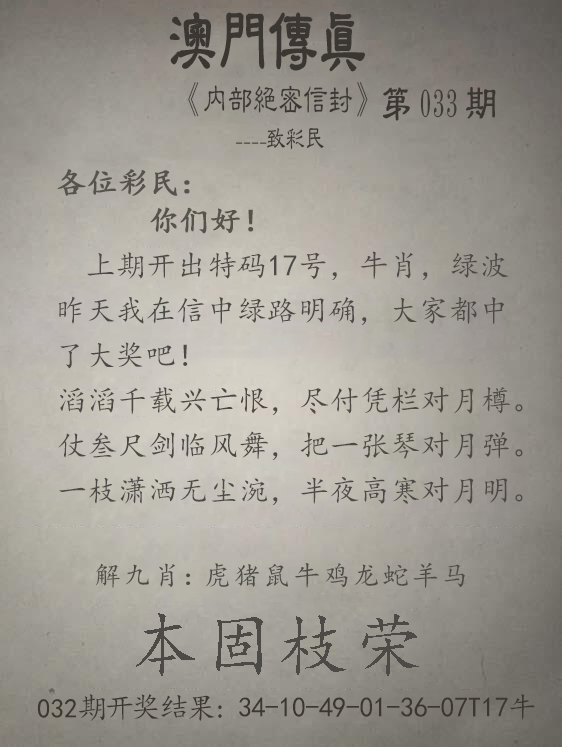 澳門傳眞
《内部絕密信封》第033期
----致彩民
各位彩民：
你们好！
上期开出特码17号，牛肖，绿波
昨天我在信中绿路明确，大家都中
了大奖吧！
滔滔千载兴亡恨，尽付凭栏对月樽。
仗叁尺剑临风舞，把一张琴对月弹。
一枝潇洒无尘涴，半夜高寒对月明。
解九肖：虎猪鼠牛鸡龙蛇羊马
本固枝荣
032期开奖结果：34-10-49-01-36-07T17牛